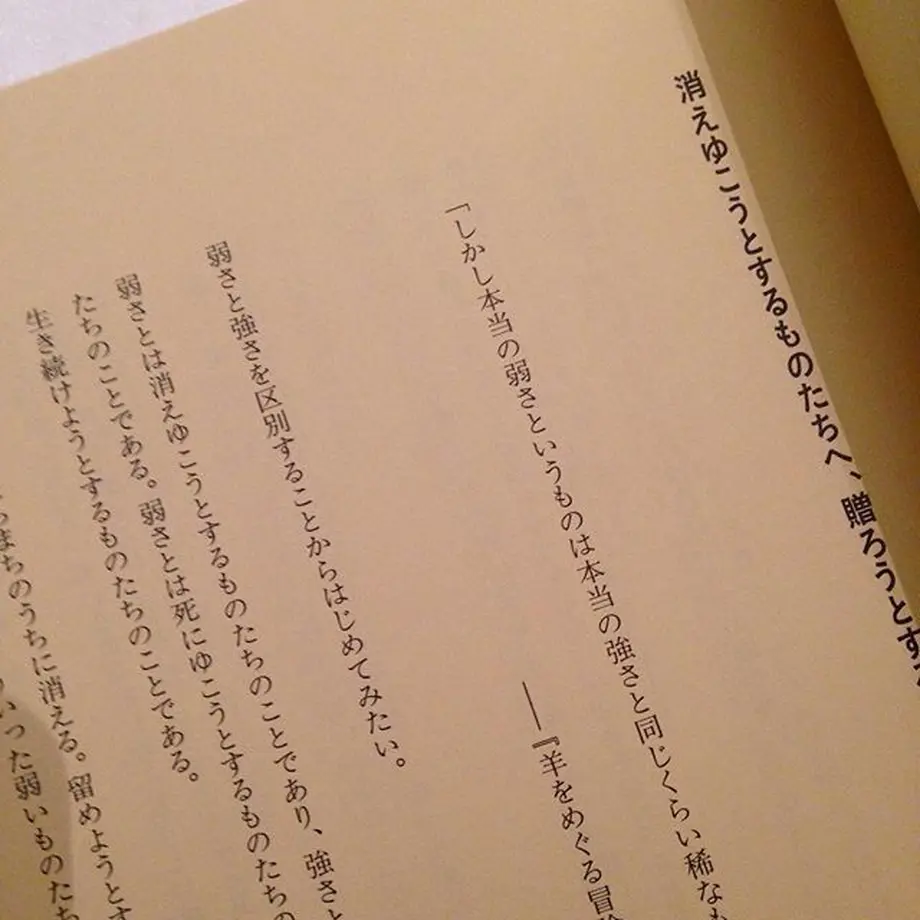 消えゆこうとするものたちへ、贈ろうとす
「しかし本当の弱さというものは本当の強さと同じくらい稀なも
――『羊をめぐる冒険
弱さと強さを区別することからはじめてみたい。
弱さとは消えゆこうとするものたちのことであり、強さと
たちのことである。弱さとは死にゆこうとするものたちの
生き続けようとするものたちのことである。
まちのうちに消える。留めようとす
いった弱いものた